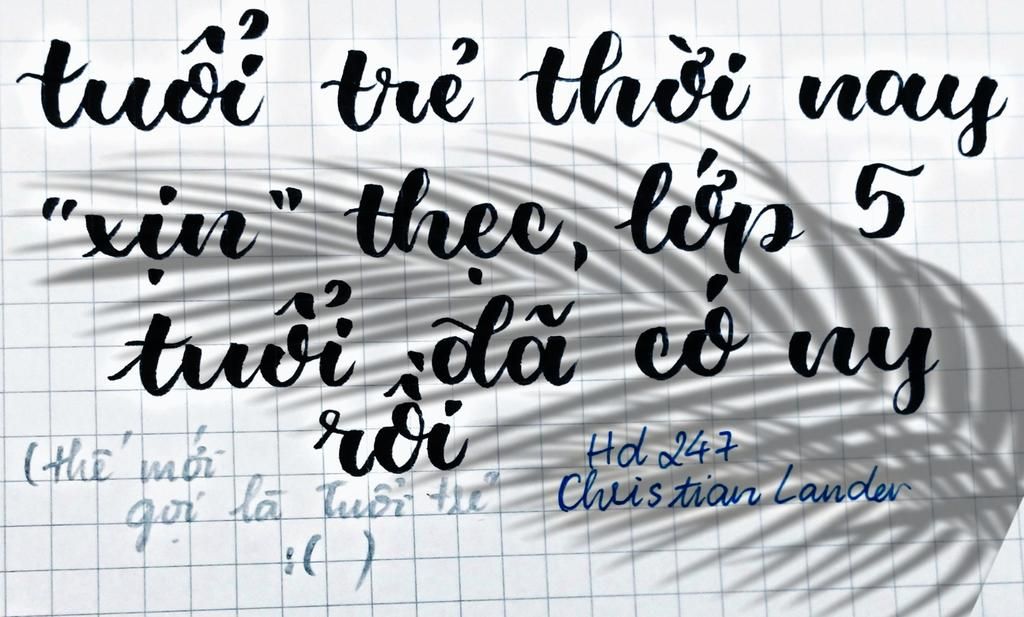 tuổi trẻ thời nay
"xịn" thẹc, lớp 5
tuổi đã có ny
rồi
(thế mới
gọi là tuổi trẻ
:( )
Hd 247
Christian Lander